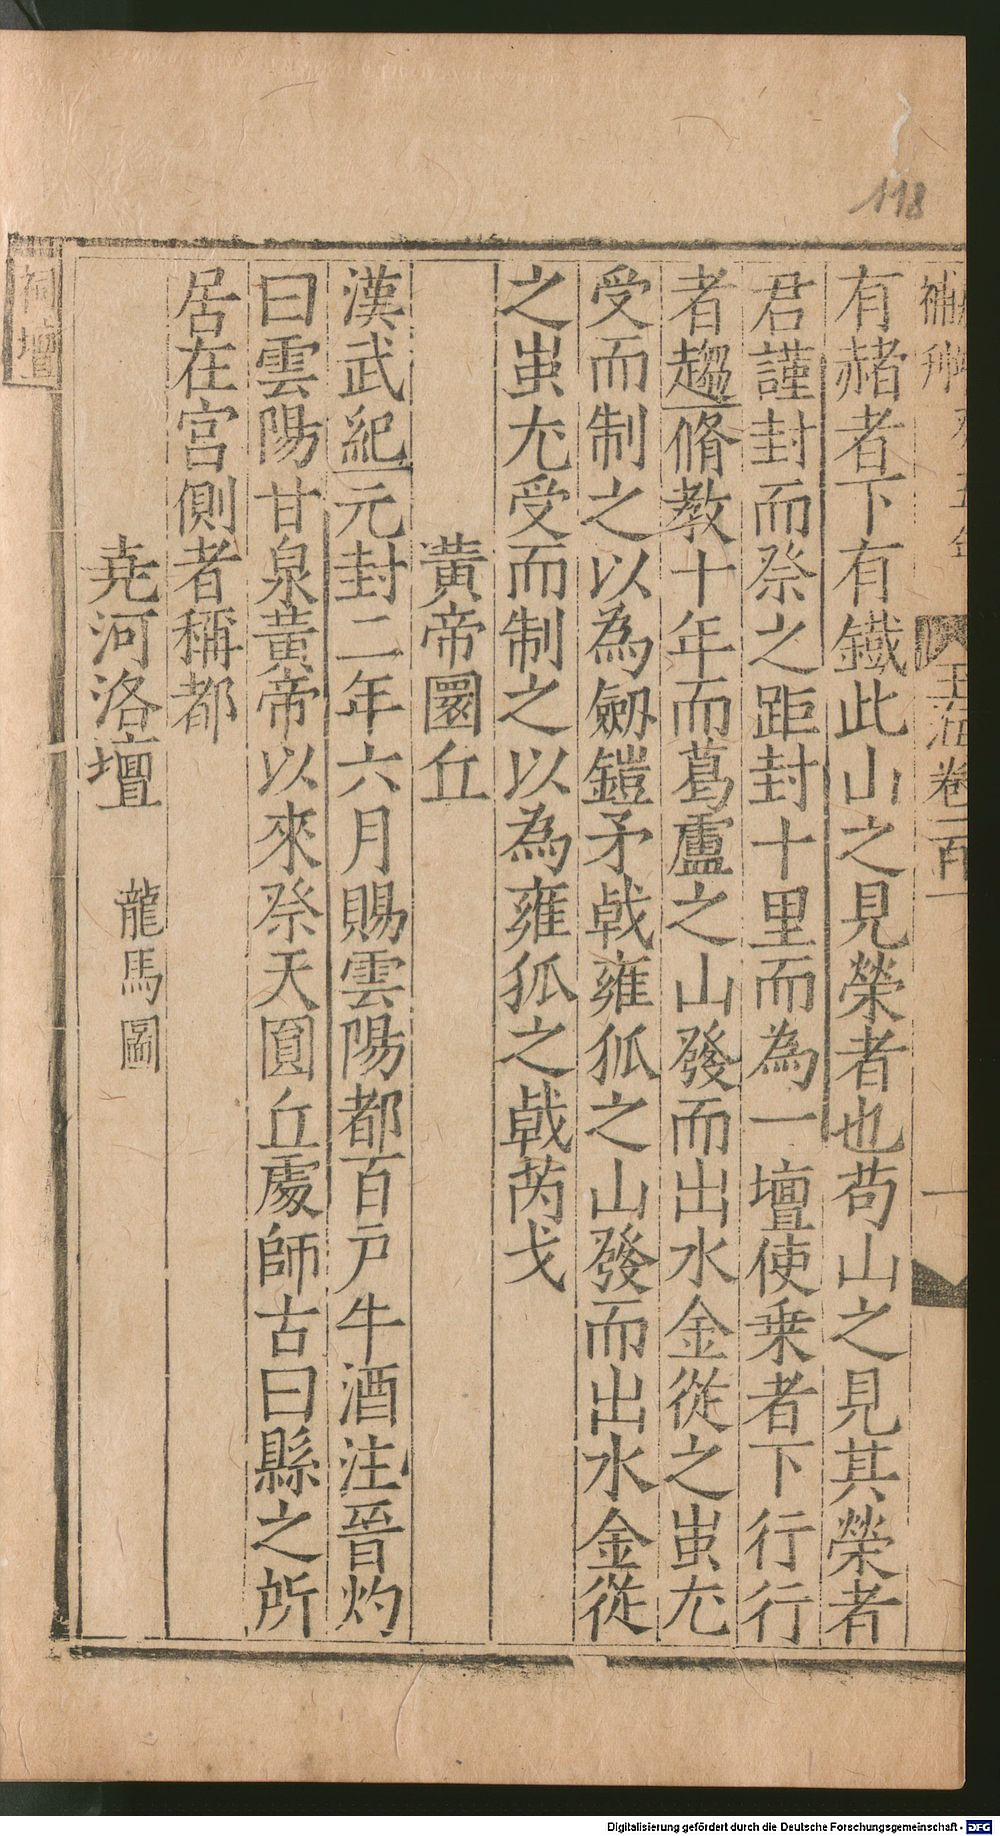 118
補刋
玉海卷一百一
一
有赭者下有鐵此山之見榮者也苟山之見其榮者
君謹封而祭之距封十里而為一壇使乗者下行行
者趨脩教十年而葛盧之山發而出水金從之蚩尤
受而制之以為劔鎧矛㦸雍狐之山發而出水金從
之蚩尤受而制之以為雍狐之㦸芮戈
黃帝圜丘
漢武紀元封二年六月賜雲陽都百户牛酒注晉灼
曰雲陽甘泉黃帝以來祭天圓丘處師古曰縣之所
居在宮側者稱都
堯河洛壇 龍馬圖
祠壇
Digitalisierung gefördert durch die Deutsche Forschungsgemeinschaft - DFG